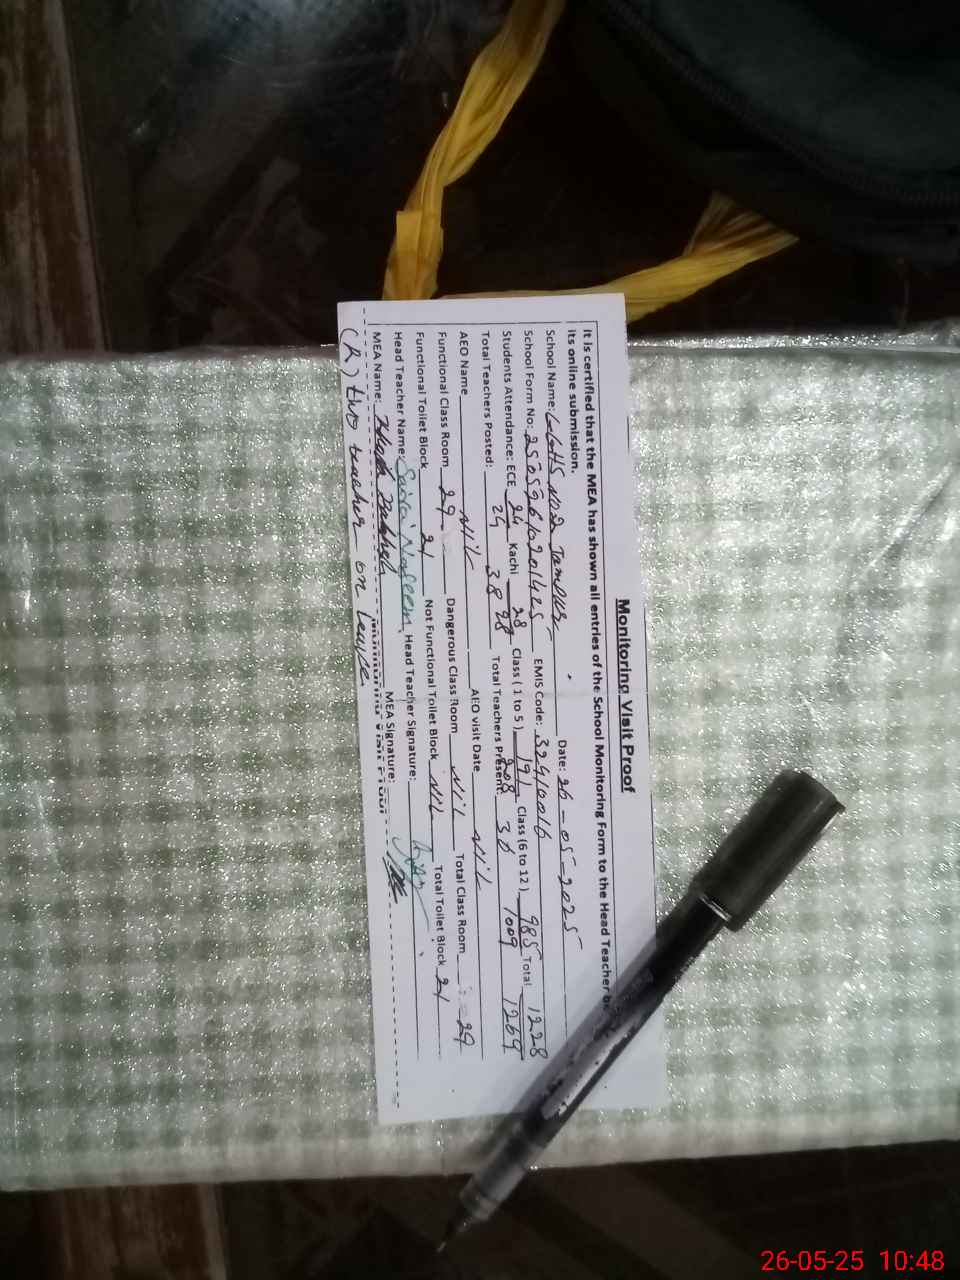 Monitoring Visit Proof
It is certified that the MEA has shown all entries of the School Monitoring Form to the Head Teacher
its online submission.
School Name: GGHS No 2 Jampur Date: 26-05-2025
School Form No: EMIS Code: 32410016
Students Attendance: ECE 24 Kachi 28 Class (1 to 5) 191 Class (6 to 12) 985 Total 1228
24 28 208 1009 1269
Total Teachers Posted: 38 Total Teachers Present: 36
AEO Name Nil AEO visit Date Nil
Functional Class Room 29 Dangerous Class Room Nil Total Class Room 29
Functional Toilet Block 21 Not Functional Toilet Block Nil Total Toilet Block 21
Head Teacher Name: Naseem Head Teacher Signature:
MEA Name: MEA Signature:
(R) two teacher on leave
26-05-25 10:48